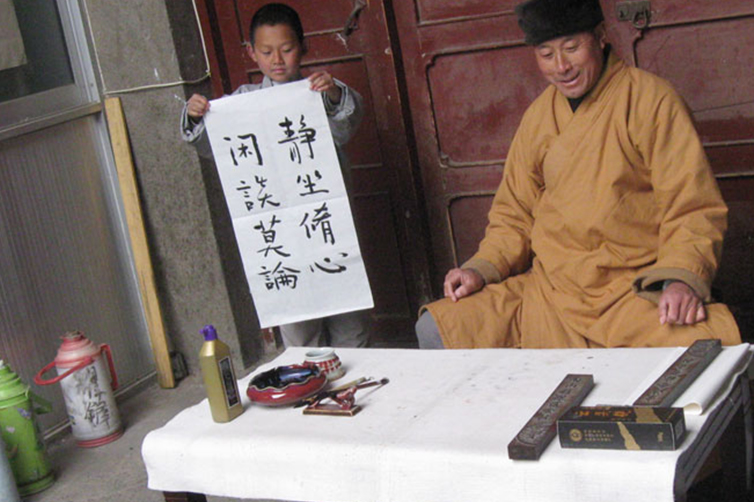 静坐脩心
闲談莫論